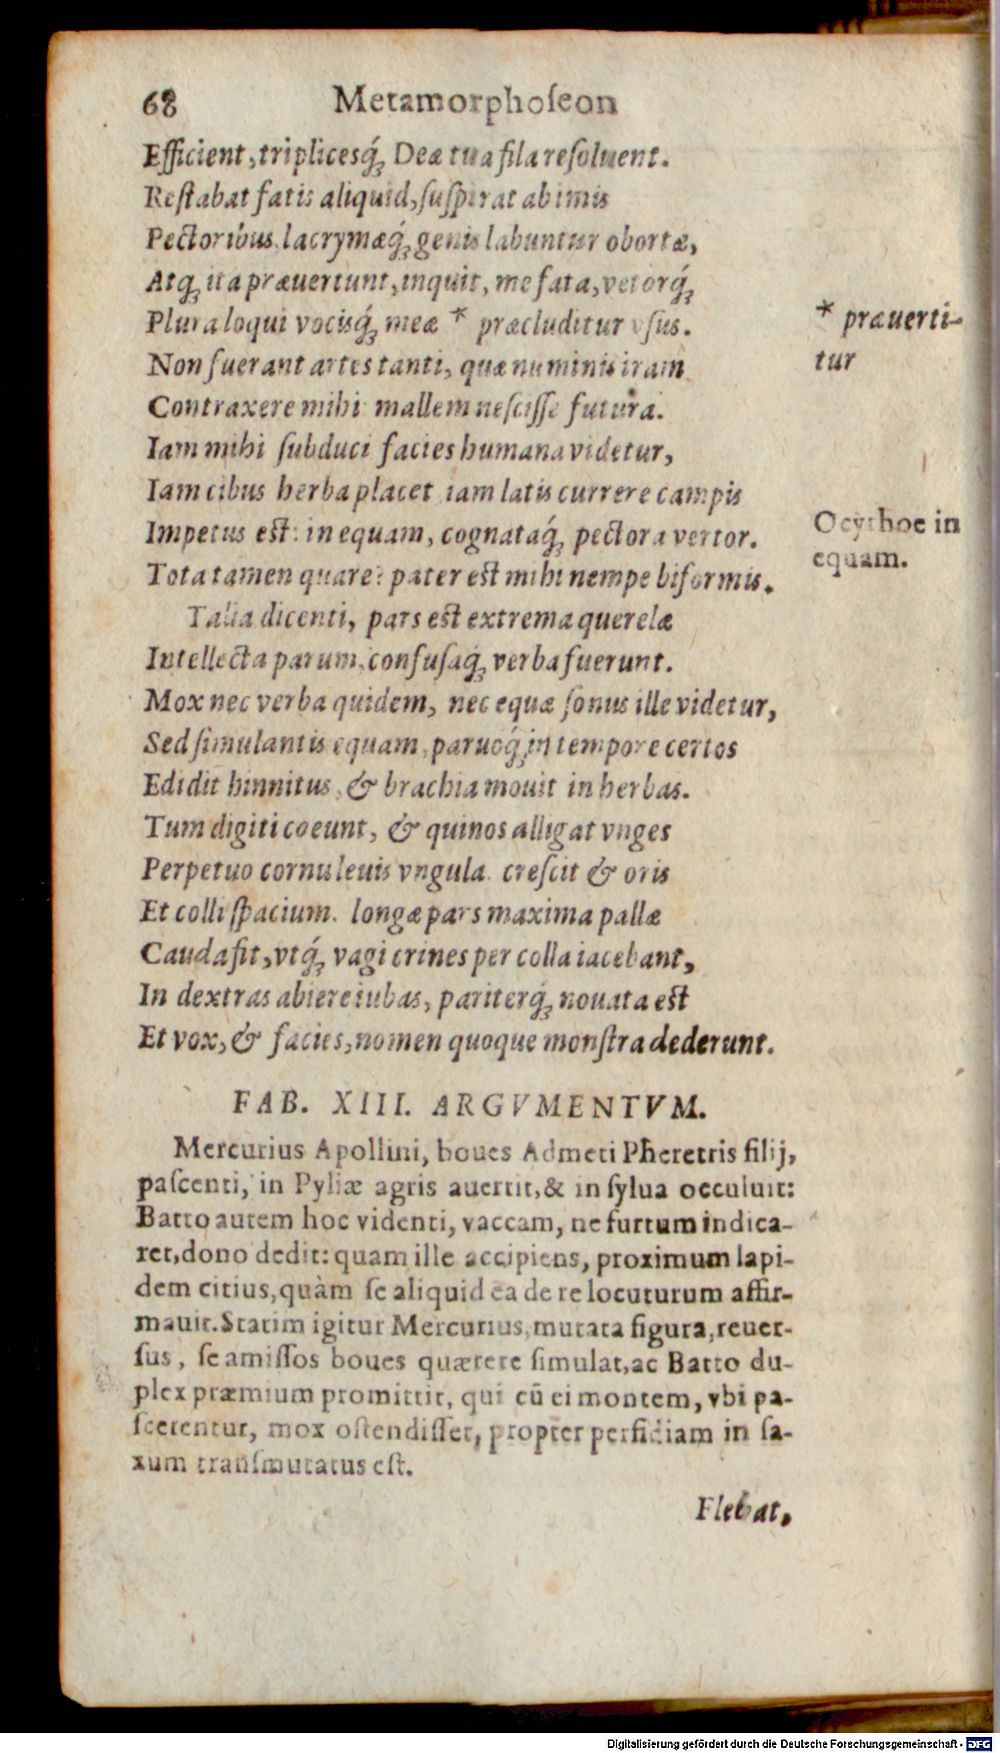 68 Metamorphoſeon
Efficient, triplicesq́ꝫ Deæ tua fila reſoluent.
Reſtabat fatis aliquid, ſuſpirat ab imis
Pectoribus, lacrymæq́ꝫ genis labuntur obortæ,
Atqꝫ ita præuertunt, inquit, me fata, vetorq́ꝫ
Plura loqui vocisq́ꝫ meæ * præcluditur vſus.
* præuerti-
tur
Non fuerant artes tanti, quæ numinis iram
Contraxere mihi mallem neſciſſe futura.
Iam mihi ſubduci facies humana videtur,
Iam cibus herba placet iam latis currere campis
Impetus est: in equam, cognataq́ꝫ pectora vertor.
Ocythoe in
equam.
Tota tamen quare? pater est mihi nempe biformis.
Talia dicenti, pars est extrema querelæ
Intellecta parum, confuſaq́ꝫ verba fuerunt.
Mox nec verba quidem, nec equæ ſonus ille videtur,
Sed ſimulantis equam, paruoq́ꝫ in tempore certos
Edidit hinnitus, & brachia mouit in herbas.
Tum digiti coeunt, & quinos alligat vnges
Perpetuo cornu leuis vngula. creſcit & oris
Et colli ſpacium. longæ pars maxima pallæ
Cauda fit, vtq́ꝫ vagi crines per colla iacebant,
In dextras abiere iubas, pariterq́ꝫ nouata est
Et vox, & facies, nomen quoque monſtra dederunt.
FAB. XIII. ARGVMENTVM.
Mercurius Apollini, boues Admeti Pheretris filij,
paſcenti, in Pyliæ agris auertit, & in ſylua occuluit:
Batto autem hoc videnti, vaccam, ne furtum indica-
ret, dono dedit: quam ille accipiens, proximum lapi-
dem citius, quàm ſe aliquid ea de re locuturum affir-
mauit. Statim igitur Mercurius, mutata figura, reuer-
ſus, ſe amiſſos boues quærere ſimulat, ac Batto du-
plex præmium promittit, qui cū ei montem, vbi pa-
ſcerentur, mox oſtendiſſet, propter perfidiam in ſa-
xum tranſmutatus eſt.
Flebat,
Digitalisierung gefördert durch die Deutsche Forschungsgemeinschaft - DFG